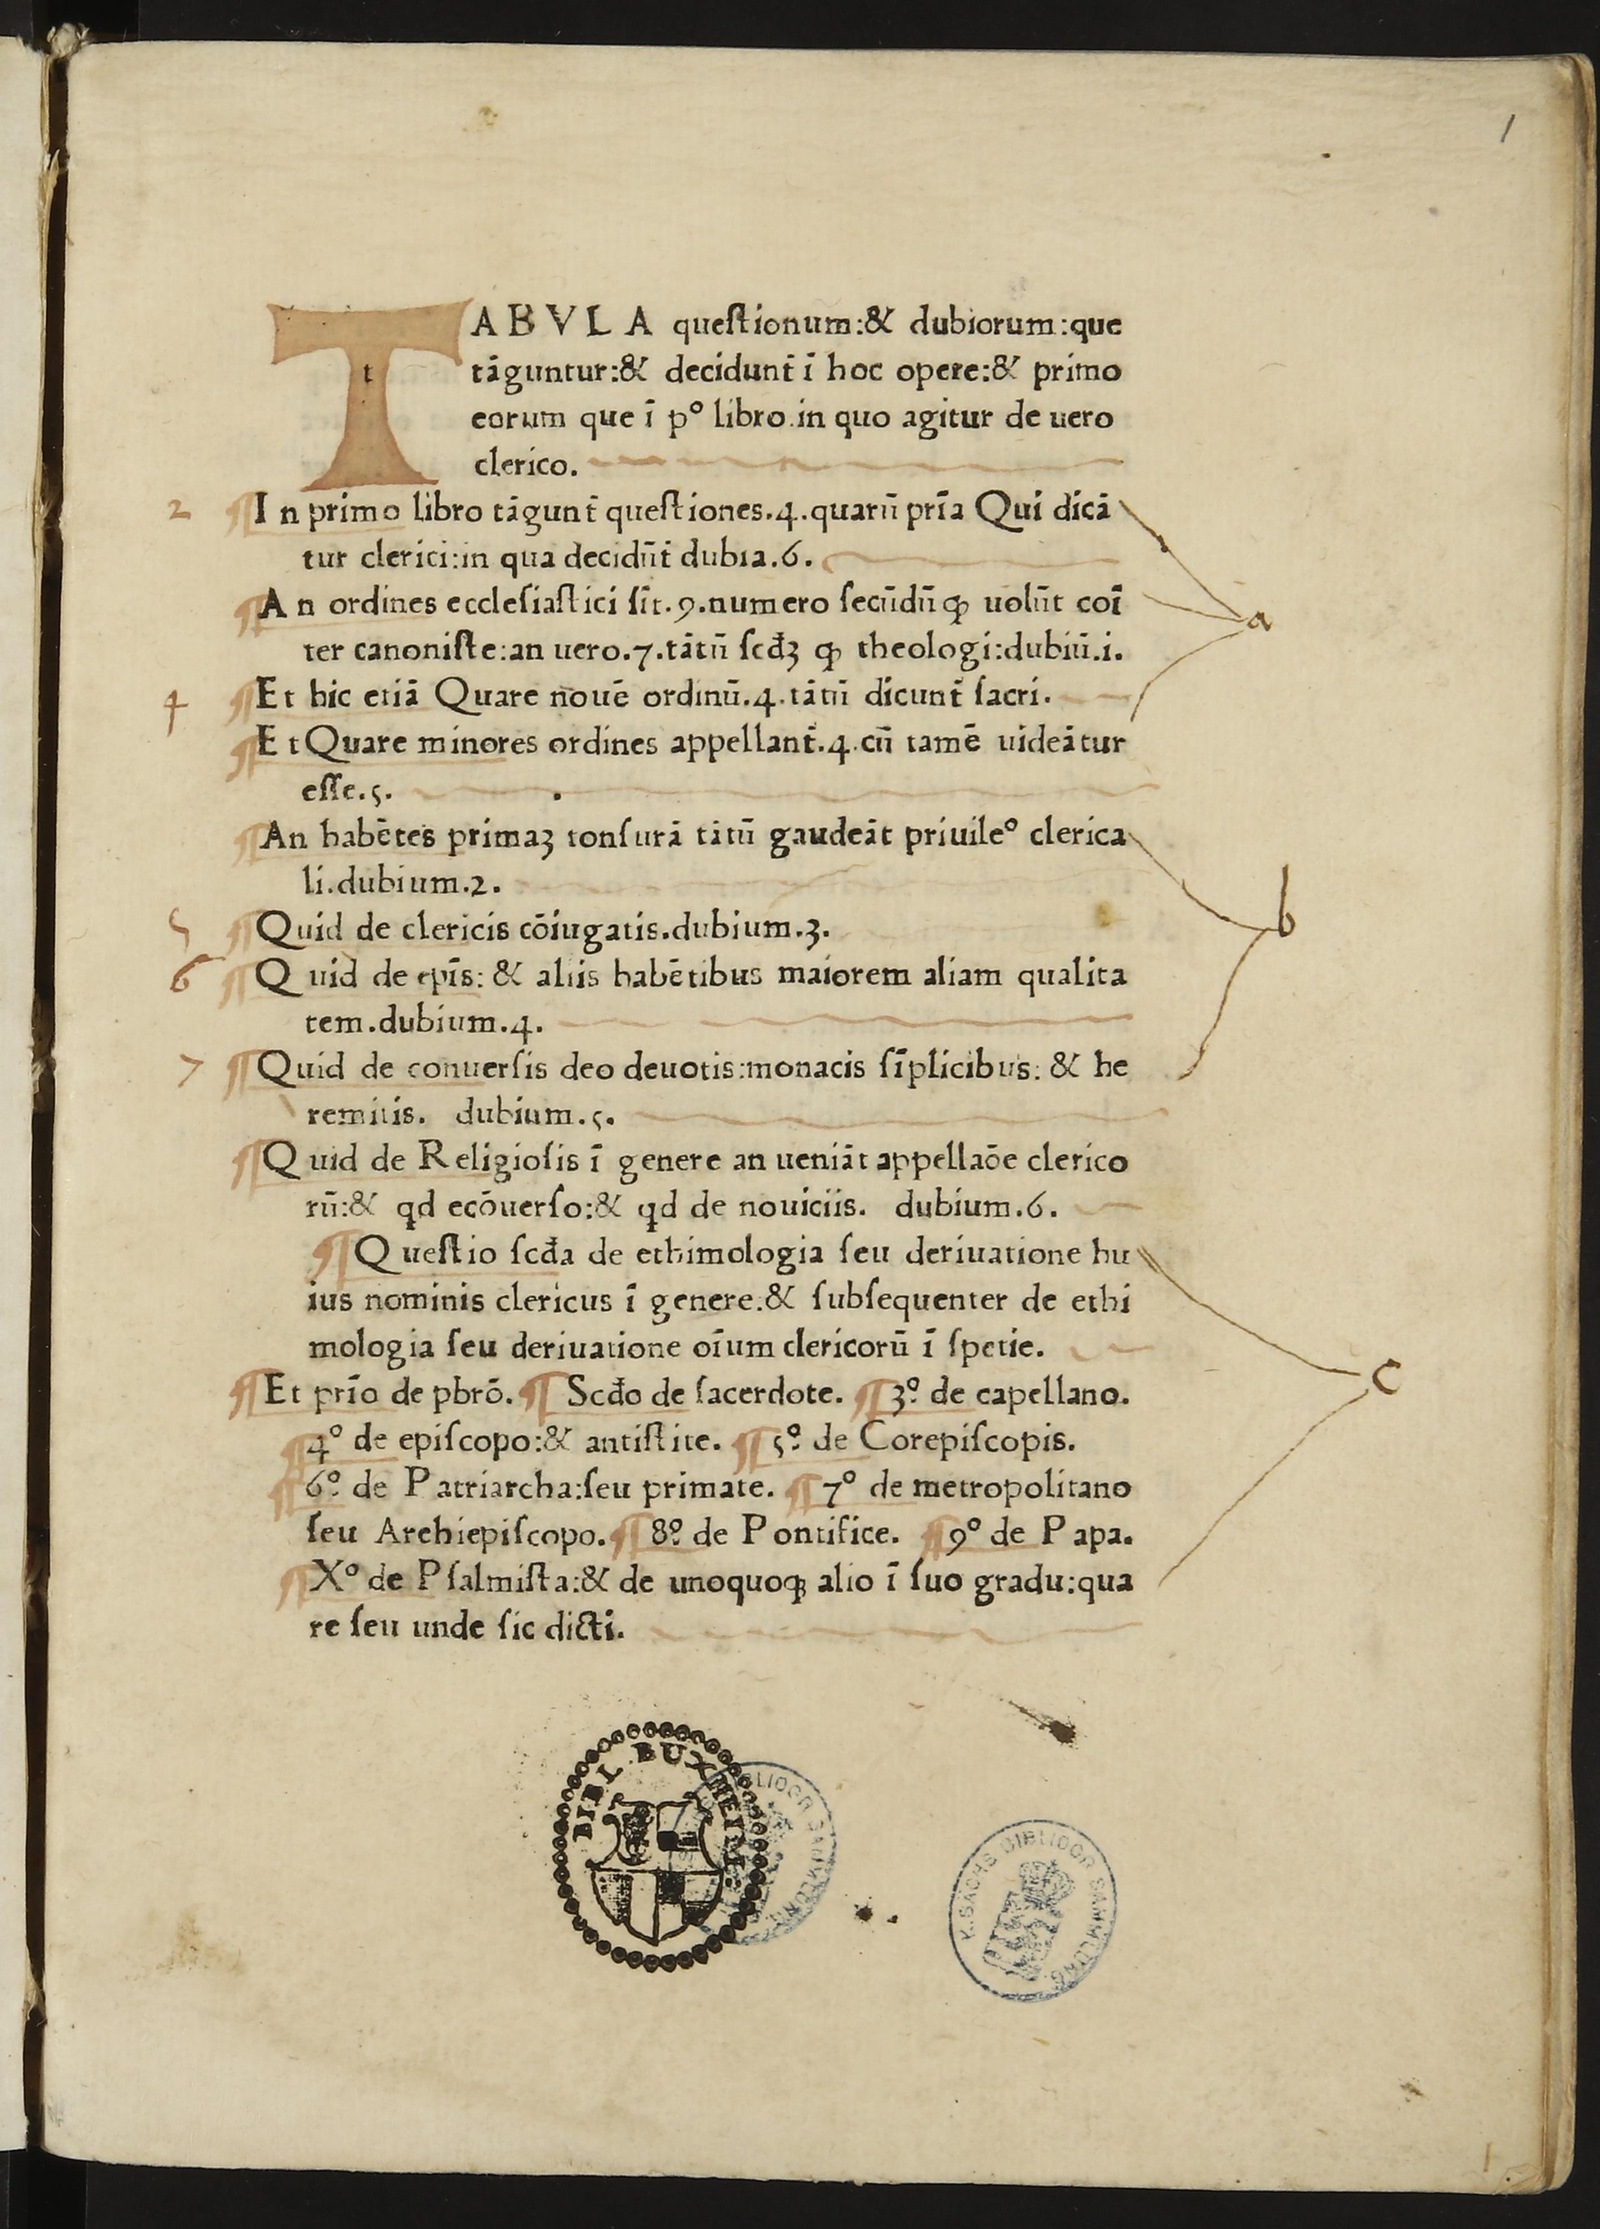 1
TABVLA questionum:& dubiorum:que
t
tāguntur:& decidunt̄ ī hoc opere:& primo
eorum que ī pº libro.in quo agitur de uero
clerico.
2 ¶ In primo libro tāgunt̄ questiones.4.quarū prīa Qui dicā
tur clerici:in qua decidūt̄ dubia.6.
¶ An ordines ecclesiastici sīt.9.numero secūdū ꝙ uolūt coī
a
ter canoniste:an uero.7.tātū scđꝫ ꝙ theologi:dubiū.i.
4 ¶ Et hic etiā Quare nouē ordinū.4.tātū dicunt̄ sacri.
¶ Et Quare minores ordines appellant̄.4.cū tamē uideātur
esse.5.
¶ An habētes primaꝫ tonsurā tātū gaudeāt priuileº clerica
li.dubium.2.
5 ¶ Quid de clericis cōiugatis.dubium.3.
b
6 ¶ Quid de ep̄is:& aliis habētibus maiorem aliam qualita
tem.dubium.4.
7 ¶ Quid de conuersis deo deuotis:monacis sīplicibus:& he
remitis. dubium.5.
¶ Quid de Religiosis ī genere an ueniāt appellaōe clerico
rū:& qd ecōuerso:& qd de nouiciis. dubium.6.
¶ Questio scđa de ethimologia seu deriuatione hu
ius nominis clericus ī genere:& subsequenter de ethi
mologia seu deriuatione oīum clericorū ī spetie.
¶ Et prīo de pbrō. ¶ Scđo de sacerdote. ¶ 3º de capellano.
c
¶ 4º de episcopo:& antistite. ¶ 5º de Corepiscopis.
¶ 6º de Patriarcha:seu primate. ¶ 7º de metropolitano
seu Archiepiscopo. ¶ 8º de Pontifice. ¶ 9º de Papa.
¶ Xº de Psalmista:& de unoquoꝙ alio ī suo gradu:qua
re seu unde sic dicti.
BIBL. BUXHEIM:
K. SÄCHS BIBLIOGR SAMMLUNG